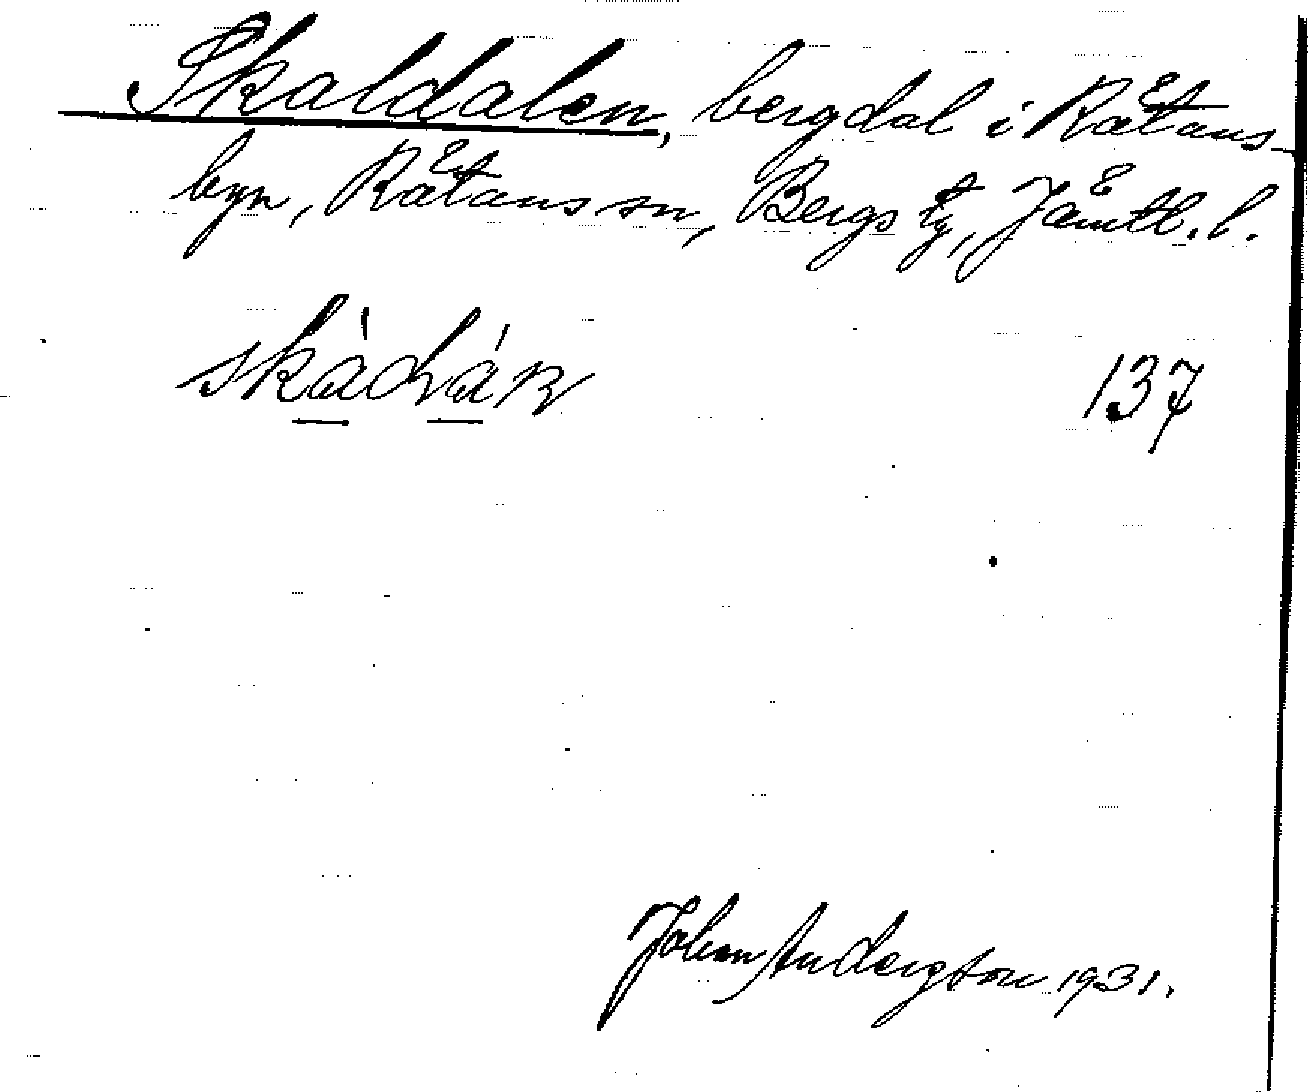 Skaldalen, bergdal i Rätans-
byn, Rätans sn, Bergs tg, Jämtl. l.
skàdláṇ 137
Johan Anderzson 1931.